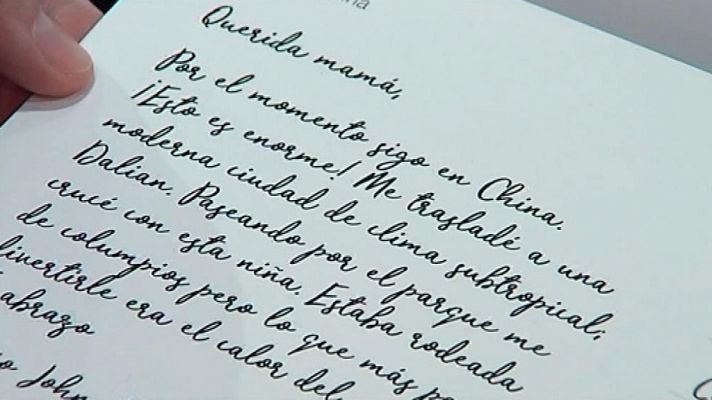 Querida mamá,
Por el momento sigo en China.
¡Esto es enorme! Me trasladé a una
moderna ciudad de clima subtropical;
Dalian. Paseando por el parque me
crucé con esta niña. Estaba rodeada
de columpios pero lo que más
era el calor del
abrazo
John